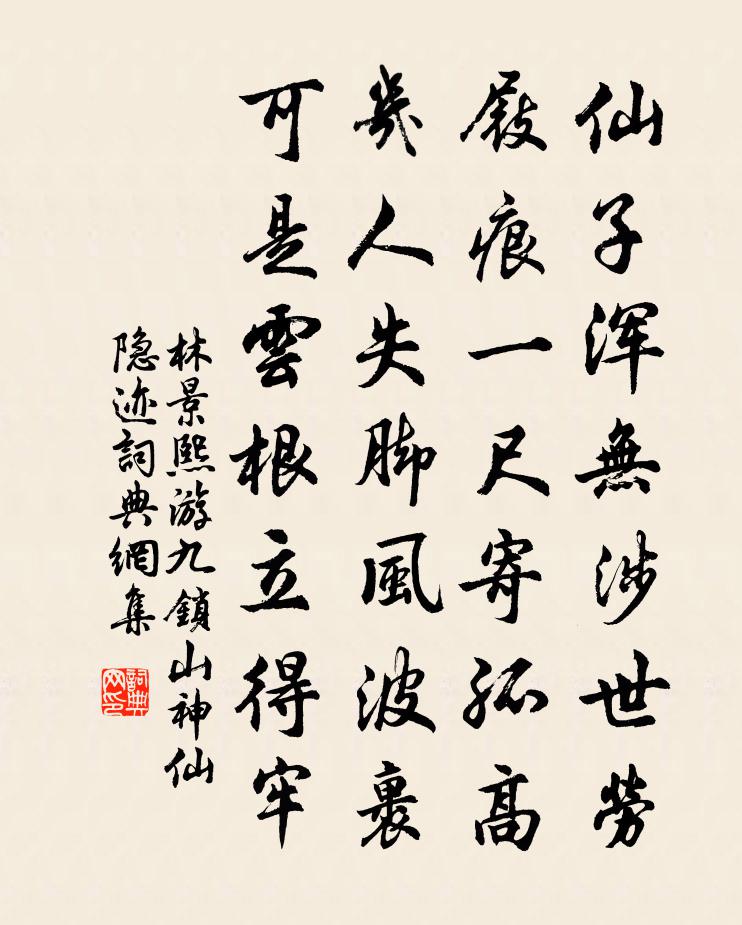 仙子浑無涉世勞
屐痕一尺寄孤高
幾人失脚風波裏
可是雲根立得牢
林景熙游九鎖山神仙
隐迹詞典網集
詞典网印